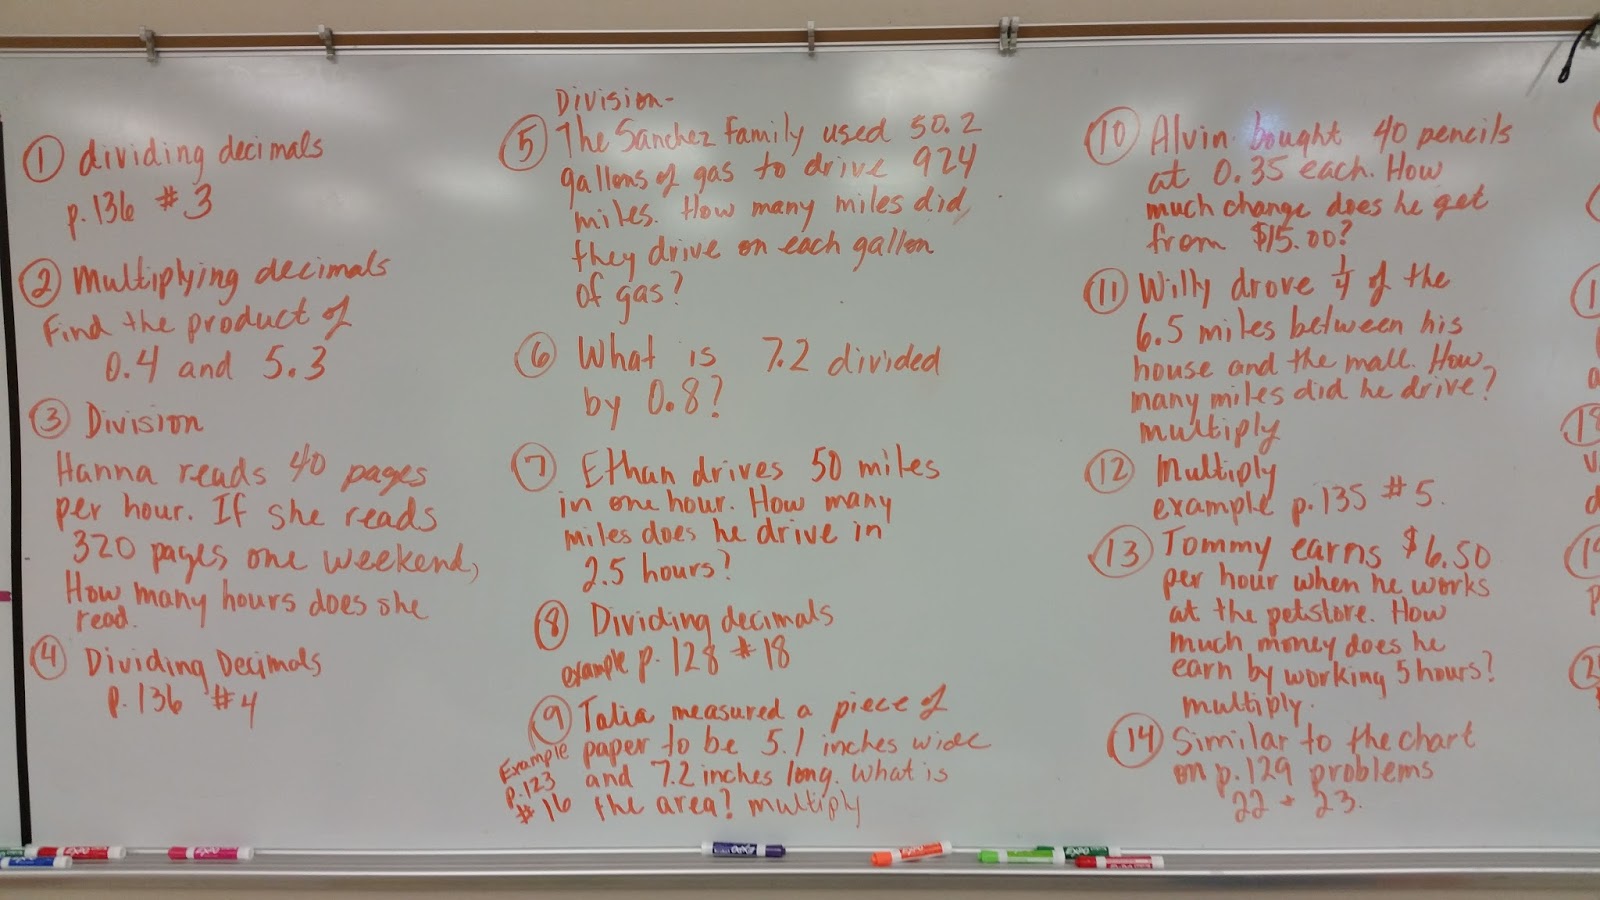 ① dividing decimals
p. 136 #3
② Multiplying decimals
Find the product of
0.4 and 5.3
③ Division
Hanna reads 40 pages
per hour. If she reads
320 pages one weekend,
How many hours does she
read.
④ Dividing Decimals
p. 136 #4
Division-
⑤ The Sanchez family used 50.2
gallons of gas to drive 924
miles. How many miles did
they drive on each gallon
of gas?
⑥ What is 7.2 divided
by 0.8?
⑦ Ethan drives 50 miles
in one hour. How many
miles does he drive in
2.5 hours?
⑧ Dividing decimals
example p. 128 #18
⑨ Talia measured a piece of
paper to be 5.1 inches wide
and 7.2 inches long. What is
the area? multiply
Example
p. 123
#16
⑩ Alvin bought 40 pencils
at 0.35 each. How
much change does he get
from $15.00?
⑪ Willy drove 1/4 of the
6.5 miles between his
house and the mall. How
many miles did he drive?
multiply
⑫ Multiply
example p. 135 #5.
⑬ Tommy earns $6.50
per hour when he works
at the petstore. How
much money does he
earn by working 5 hours?
multiply.
⑭ Similar to the chart
on p. 129 problems
22 + 23.